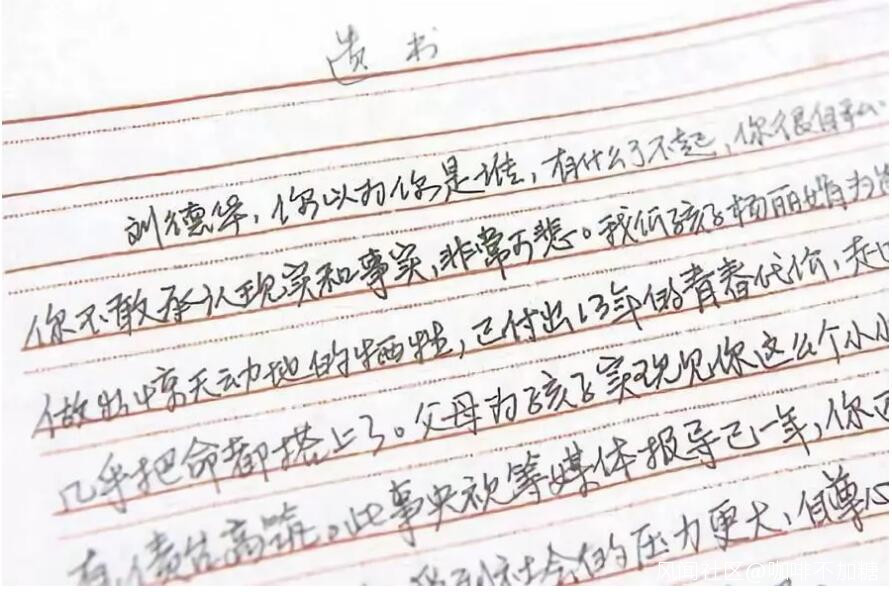 遗书
刘德华，你以为你是谁，有什么了不起，你很自私，
你不敢承认现实和事实，非常可悲。我们孩子杨丽娟为
做出惊天动地的牺牲，已付出13年的青春代价，走
几乎把命都搭上了。父母为孩子实现见你这么个小小
债台高筑。此事央视等媒体报导已一年，你
到社会的压力更大，自尊心
@咖啡不加糖